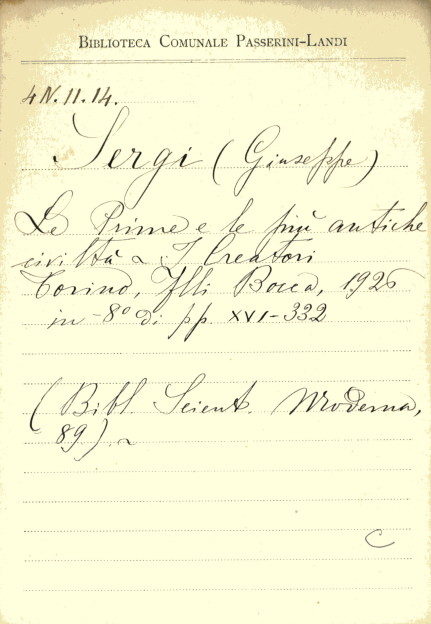 BIBLIOTECA COMUNALE PASSERINI-LANDI
4N.11.14.
Sergi (Giuseppe)
Le Prime e le più antiche
civiltà ~ : I Creatori
Torino, Flli Bocca, 1926
in -8° di pp. XVI-332
(Bibl. Scient. Moderna,
89). ~
C